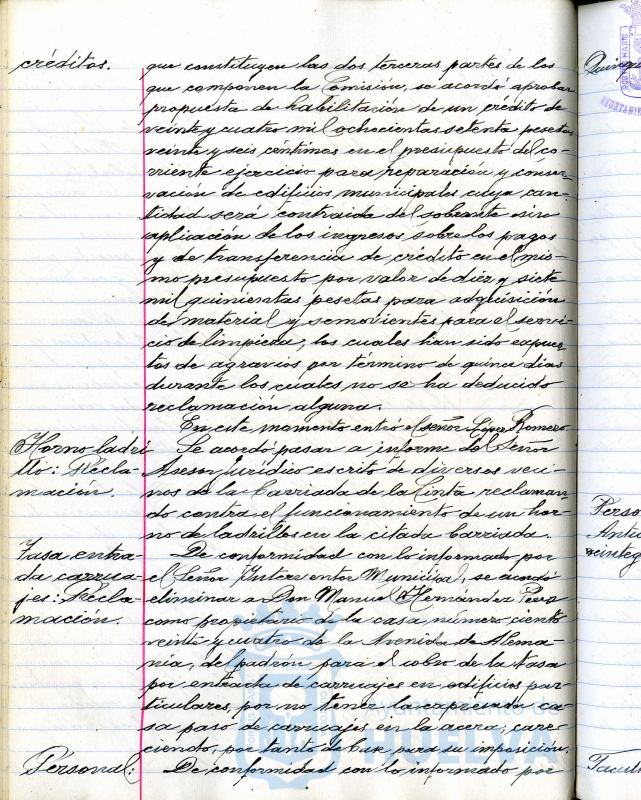 créditos.
que constituyen las dos terceras partes de los
que componen la Comisión, se acordó aprobar
propuesta de habilitación de un crédito de
veinte y cuatro mil ochocientas setenta pesetas
veinte y seis céntimos en el presupuesto del co-
rriente ejercicio para reparación y conser-
vación de edificios municipales cuya can-
tidad será contraida del sobrante sin
aplicación de los ingresos sobre los pagos
y de transferencia de crédito en el mis-
mo presupuesto por valor de diez y siete
mil quinientas pesetas para adquisición
de material y semovientes para el servi-
cio de limpieza, los cuales han sido expues-
tos de agravios por término de quince dias
durante los cuales no se ha deducido
reclamación alguna.
En este momento entró el señor López Romero
Horno ladri
llo: Recla-
mación.
Se acordó pasar a informe del Señor
Asesor jurídico escrito de diversos veci-
nos de la barriada de la Cinta reclaman-
do contra el funcionamiento de un hor-
no de ladrillos en la citada barriada.
Tasa entra-
da carrua-
jes: Recla-
mación.
De conformidad con lo informado por
el Señor Interventor Municipal, se acordó
eliminar a Don Manuel Hernández Pérez
como propietario de la casa número ciento
veinte y cuatro de la Avenida de Alema-
nia, del padrón para el cobro de la tasa
por entrada de carruajes en edificios par-
ticulares, por no tener la expresada ca-
sa paso de carruajes en la acera, care-
ciendo, por tanto de base para su imposición.
Personal:
De conformidad con lo informado por
Ayuntamiento de
HUELVA
Perso
Antic
reinteg
Facult